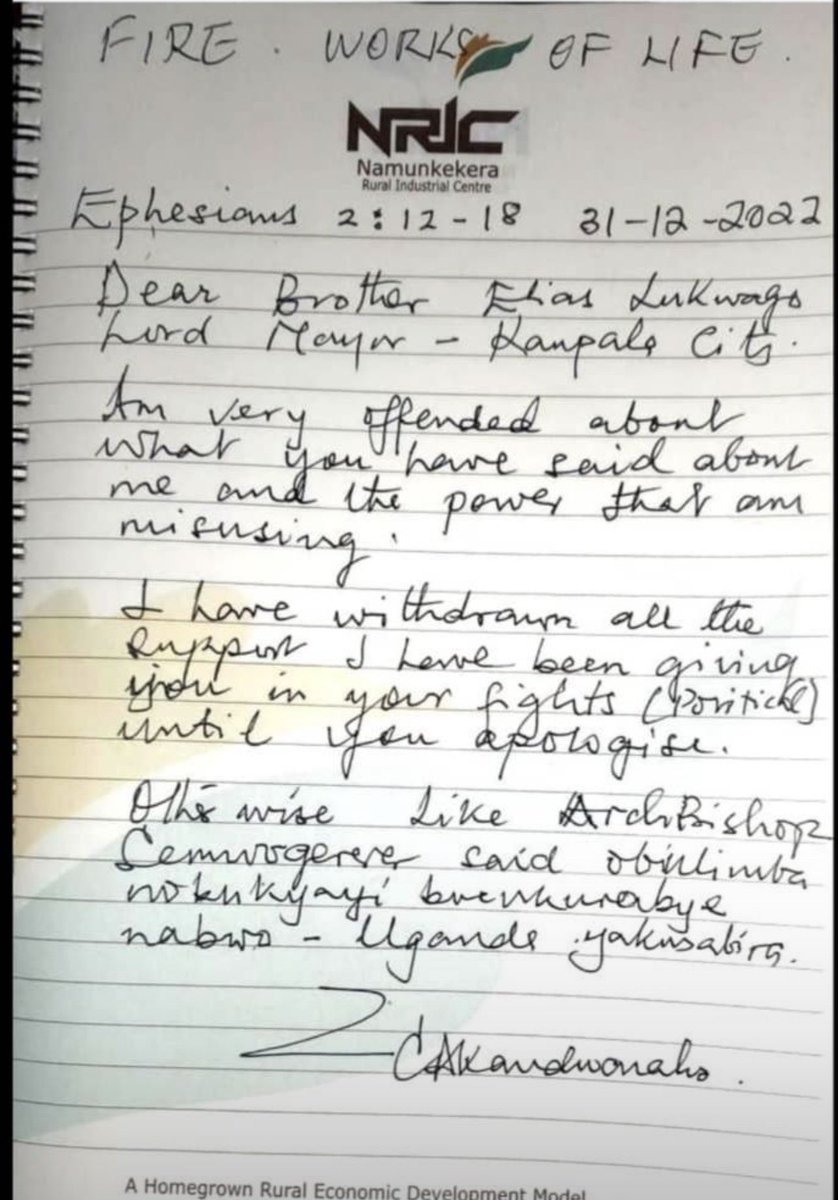 FIRE. WORKS OF LIFE.
NRIC
Namunkekera
Rural Industrial Centre
Ephesians 2:12-18 31-12-2022
Dear Brother Elias Lukwago
Lord Mayor - Kampala City.
Am very offended about
what you have said about
me and the power that am
misusing.
I have withdrawn all the
support I have been giving
you in your fights (Political)
until you apologise.
Otherwise Like ArchBishop
Semwogerere said obulimba
nokukyayi
nabwo - Uganda yakusabira.
CAkandwonaho.
A Homegrown Rural Economic Development Model